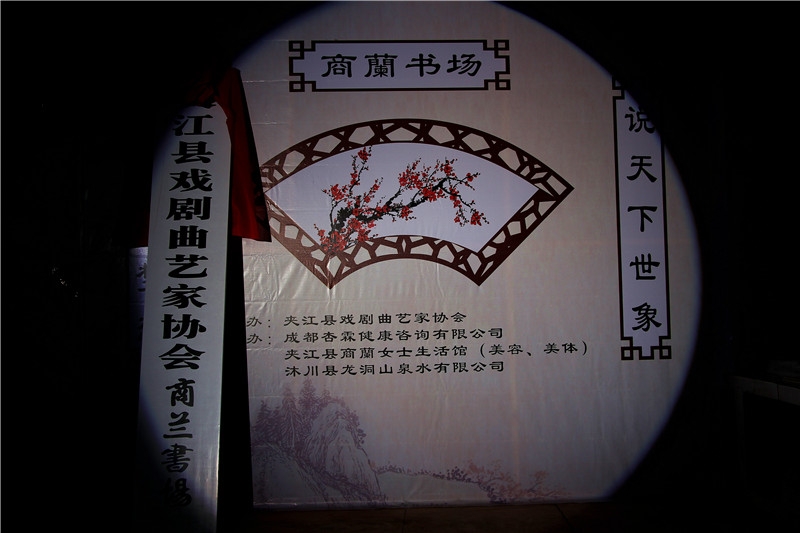 商蘭书场
说天下世象
江县戏剧曲艺家协会
商兰書場
办：夹江县戏剧曲艺家协会
办：成都杏霖健康咨询有限公司
夹江县商蘭女士生活馆（美容、美体）
沐川县龙洞山泉水有限公司